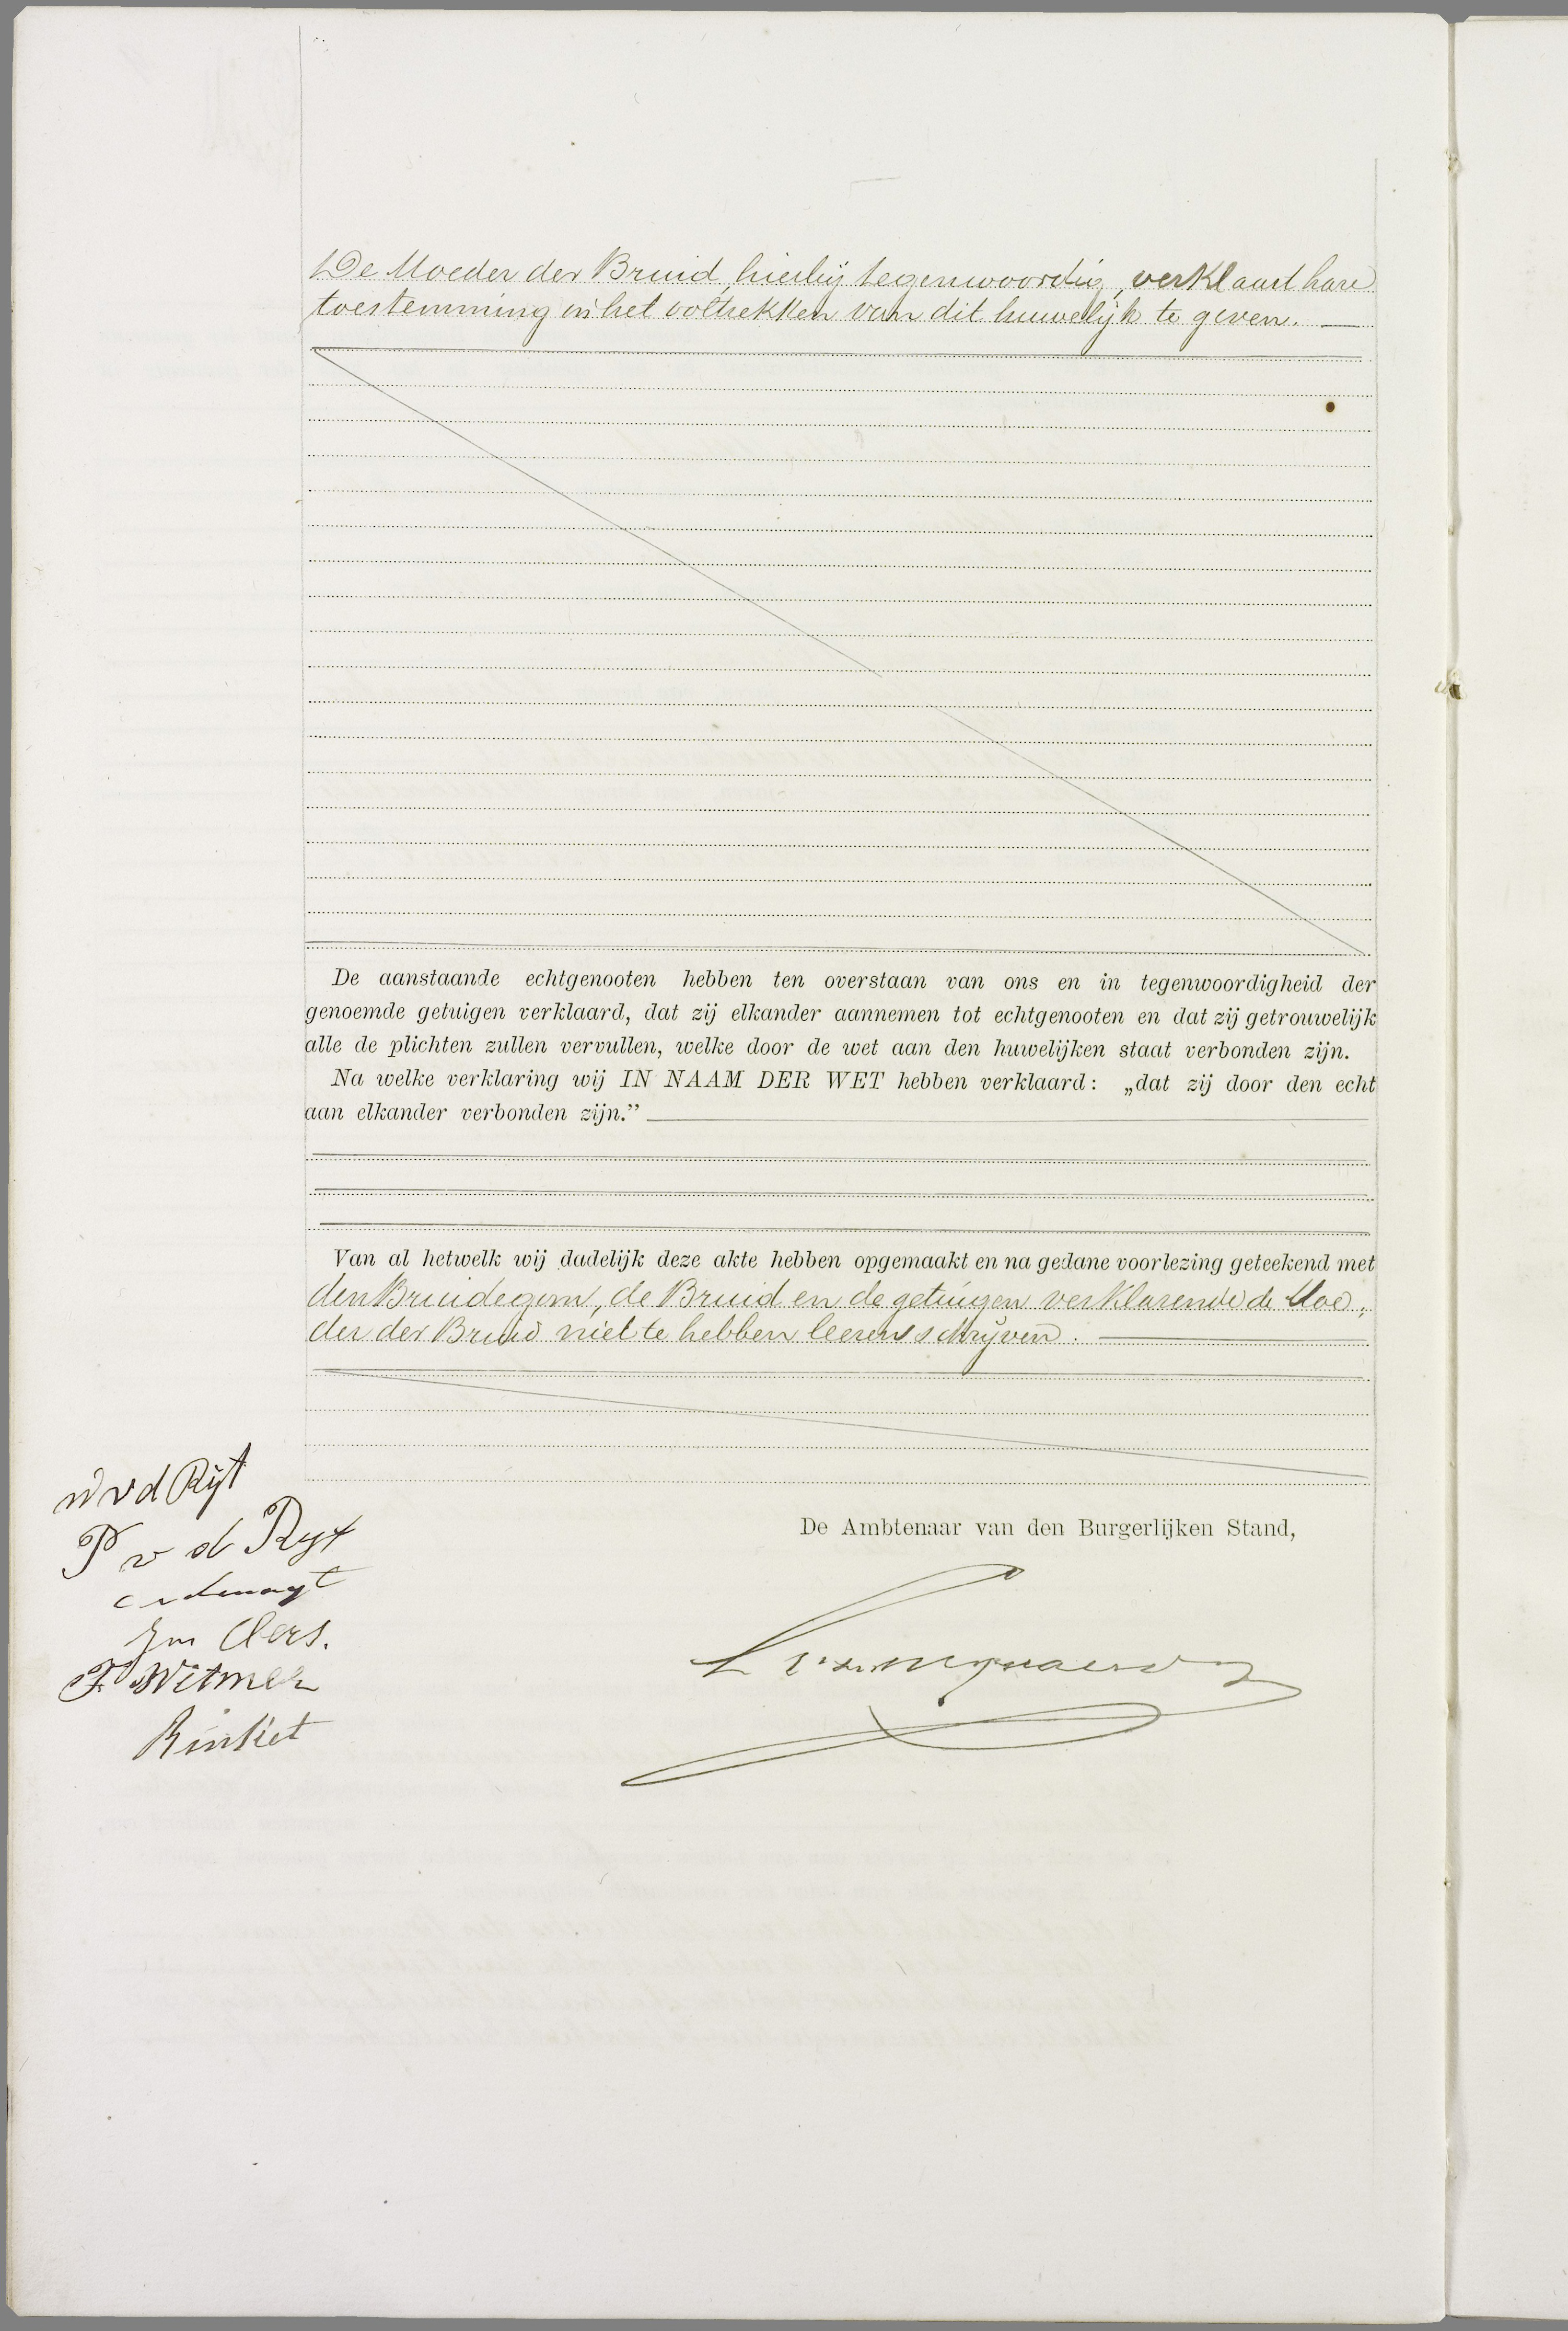 De Moeder der Bruid, hierbij tegenwoordig, verklaart hare
toestemming in het voltrekken van dit huwelijk te geven.
De aanstaande echtgenooten hebben ten overstaan van ons en in tegenwoordigheid der
genoemde getuigen verklaard, dat zij elkander aannemen tot echtgenooten en dat zij getrouwelijk
alle de plichten zullen vervullen, welke door de wet aan den huwelijken staat verbonden zijn.
Na welke verklaring wij IN NAAM DER WET hebben verklaard: „dat zij door den echt
aan elkander verbonden zijn.”
Van al hetwelk wij dadelijk deze akte hebben opgemaakt en na gedane voorlezing geteekend met
den Bruidegom, de Bruid en de getuigen verklarende de Moe„
der der Bruid niet te hebben leeren schrijven.
W v d Rijt
P v d Ryt
F Witmer
Rinket
De Ambtenaar van den Burgerlijken Stand,